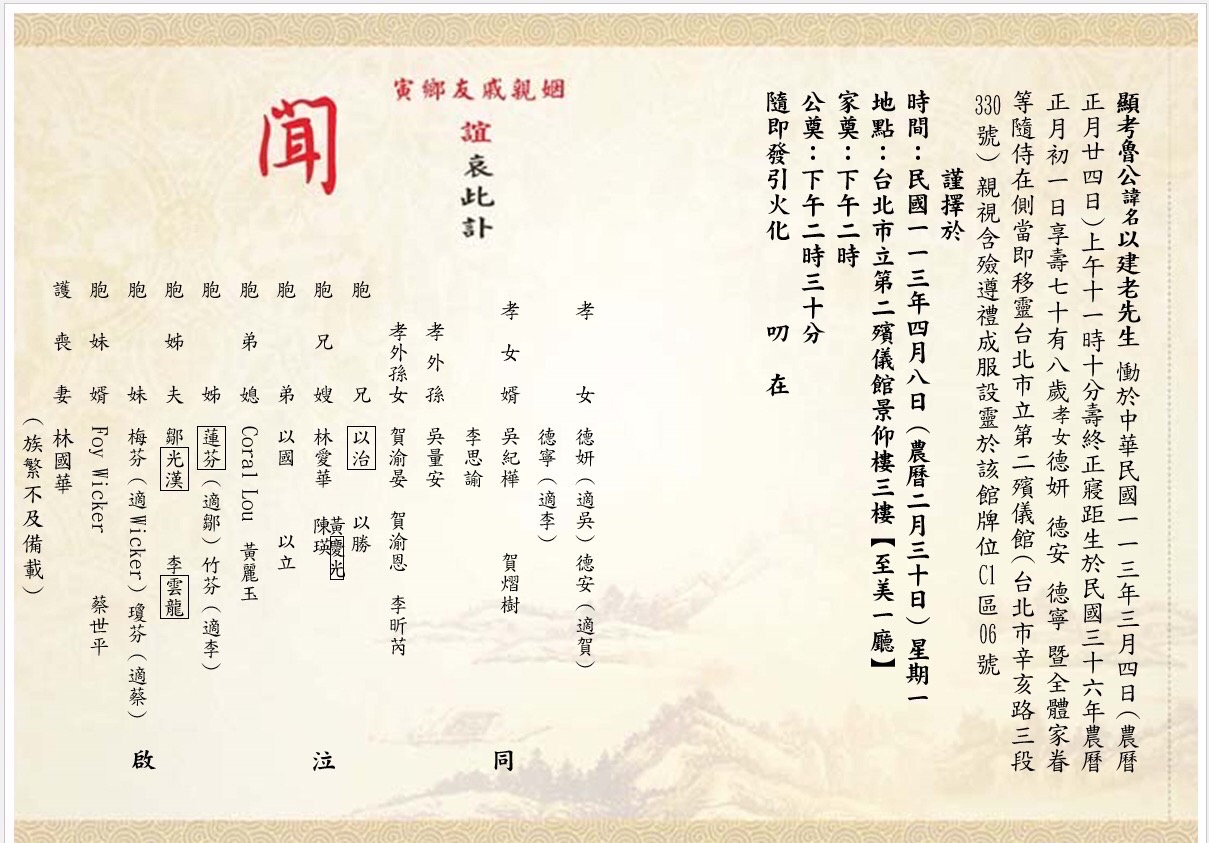 顯考魯公諱名以建老先生 慟於中華民國一一三年三月四日(農曆
正月廿四日)上午十一時十分壽終正寢距生於民國三十六年農曆
正月初一日享壽七十有八歲孝女德妍 德安 德寧 暨全體家眷
等隨侍在側當即移靈台北市立第二殯儀館(台北市辛亥路三段
330號)親視含殮遵禮成服設靈於該館牌位C1區06號
謹擇於
時間：民國一一三年四月八日(農曆二月三十日)星期一
地點：台北市立第二殯儀館景仰樓三樓【至美一廳】
家奠：下午二時
公奠：下午二時三十分
隨即發引火化 叨 在
姻親戚友鄉寅
誼哀此訃
聞
孝女 德妍(適吳)德安(適賀)
德寧(適李)
孝女婿 吳紀樺 賀熠樹
李思諭
孝外孫 吳量安
孝外孫女 賀渝晏 賀渝恩 李昕芮
胞兄 以治 以勝
胞兄嫂 林愛華 黃慶光 陳瑛
胞弟 以國 以立
胞弟媳 Coral Lou 黃麗玉
胞姊 蓮芬(適鄒)竹芬(適李)
胞姊夫 鄒光漢 李雲龍
胞妹 梅芬(適Wicker)瓊芬(適蔡)
胞妹婿 Foy Wicker 蔡世平
護喪妻 林國華
(族繁不及備載)
同 泣 啟